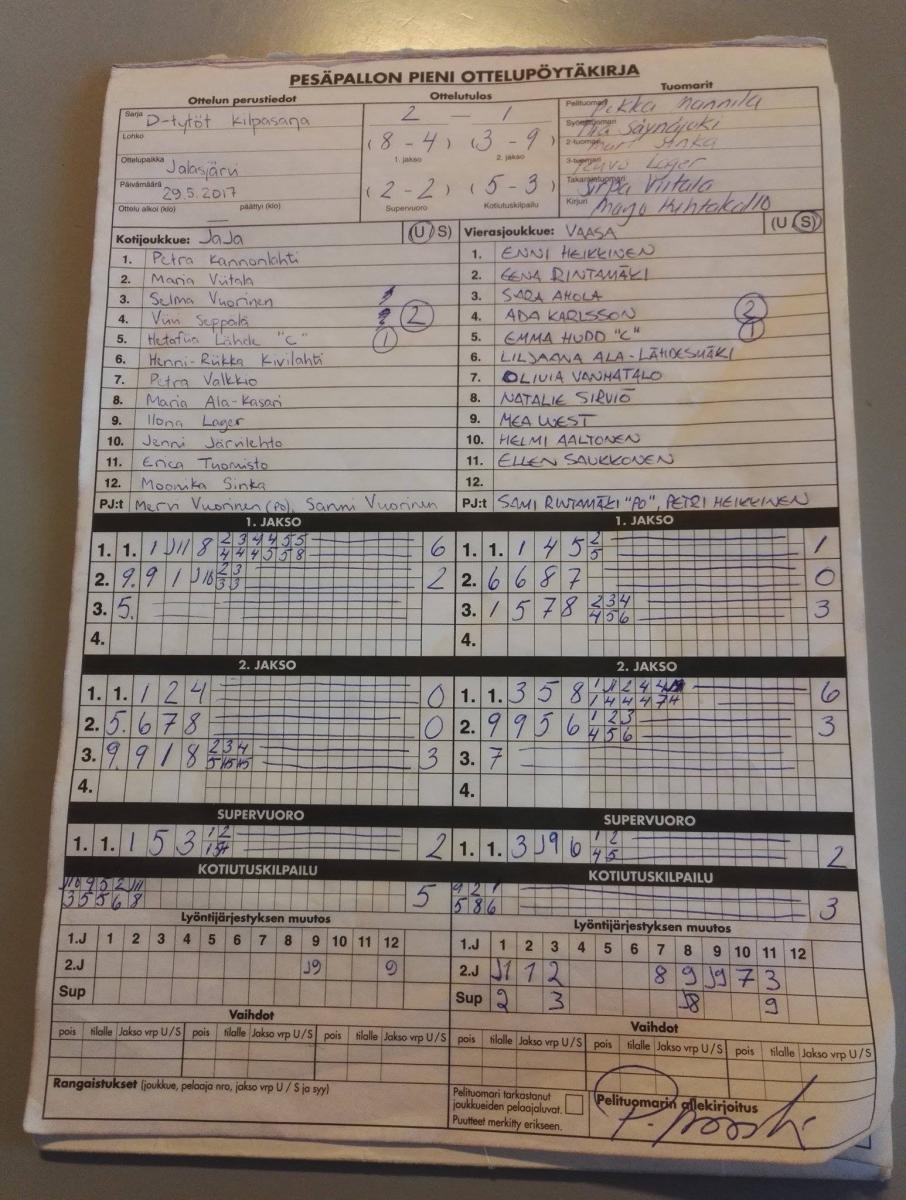 PESÄPALLON PIENI OTTELUPÖYTÄKIRJA
Ottelun perustiedot
Ottelutulos
Tuomarit
Sarja D-tytöt kilpasarja
2 - 1
Pelituomari Pekka Mannila
Lohko
(8 - 4) (3 - 9)
Syöttötuomari
1. jakso 2. jakso
2-tuomari Sinka
Ottelupaikka Jalasjärvi
3-tuomari Lager
Päivämäärä 29.5.2017
(2 - 2) (5 - 3)
Takarajatuomari Sirpa Viitala
Ottelu alkoi (klo) — päättyi (klo)
Supervuoro Kotiutuskilpailu
Kirjuri
Kotijoukkue: JaJa (U/S)
Vierasjoukkue: VAASA (U/S)
1. Petra Kannonlahti
1. ENNI HEIKKINEN
2. Maria Viitala
2. EENA RINTAMÄKI
3. Selma Vuorinen
3. SARA AHOLA
4. Viivi Seppälä 2
4. ADA KARLSSON 2
5. Lähde "C" 1
5. EMMA HUDD "C" 1
6. Henni-Riikka Kivilahti
6. LILJAANA ALA-LÄHDESMÄKI
7. Petra Valkkio
7. OLIVIA VANHATALO
8. Maria Ala-Kasari
8. NATALIE SIRVIÖ
9. Ilona Lager
9. MEA WEST
10. Jenni Järvilehto
10. HELMI AALTONEN
11. Erica Tuomisto
11. ELLEN SAUKKONEN
12. Moonika Sinka
12.
PJ:t Mervi Vuorinen (PO), Sanni Vuorinen
PJ:t SAMI RINTAMÄKI "PO", PETRI HEIKKINEN
1. JAKSO
1. JAKSO
1. 1. 1 J11 8 2 3 4 4 5 5 6
4 4 4 5 5 8
1. 1. 1 4 5 2 1
5
2. 9. 9 1 J10 2 3 2
3 3
2. 6 6 8 7 0
3. 5.
3. 1 5 7 8 2 3 4 3
4 5 6
4.
4.
2. JAKSO
2. JAKSO
1. 1. 1 2 4 0
1. 1. 3 5 8 6
2. 5. 6 7 8 0
2. 9 9 5 6 1 2 3 3
4 5 6
3. 9. 9 1 8 2 3 4 3
3. 7
4.
4.
SUPERVUORO
SUPERVUORO
1. 1. 1 5 3 1 2 2
1. 1. 3 J9 6 1 2 2
4 5
KOTIUTUSKILPAILU
KOTIUTUSKILPAILU
J10 9 5 2 J11 5
3 5 5 6 8
9 2 1 3
5 8 6
Lyöntijärjestyksen muutos
Lyöntijärjestyksen muutos
1.J 1 2 3 4 5 6 7 8 9 10 11 12
1.J 1 2 3 4 5 6 7 8 9 10 11 12
2.J J9 9
2.J J1 1 2 8 9 J9 7 3
Sup
Sup 2 3 J8 9
Vaihdot
Vaihdot
pois tilalle Jakso vrp U/S pois tilalle Jakso vrp U/S pois tilalle Jakso vrp U/S
pois tilalle Jakso vrp U/S pois tilalle Jakso vrp U/S pois tilalle Jakso vrp U/S
Rangaistukset (joukkue, pelaaja nro, jakso vrp U / S ja syy)
Pelituomari tarkastanut
joukkueiden pelaajaluvat.
Puutteet merkitty erikseen.
Pelituomarin allekirjoitus